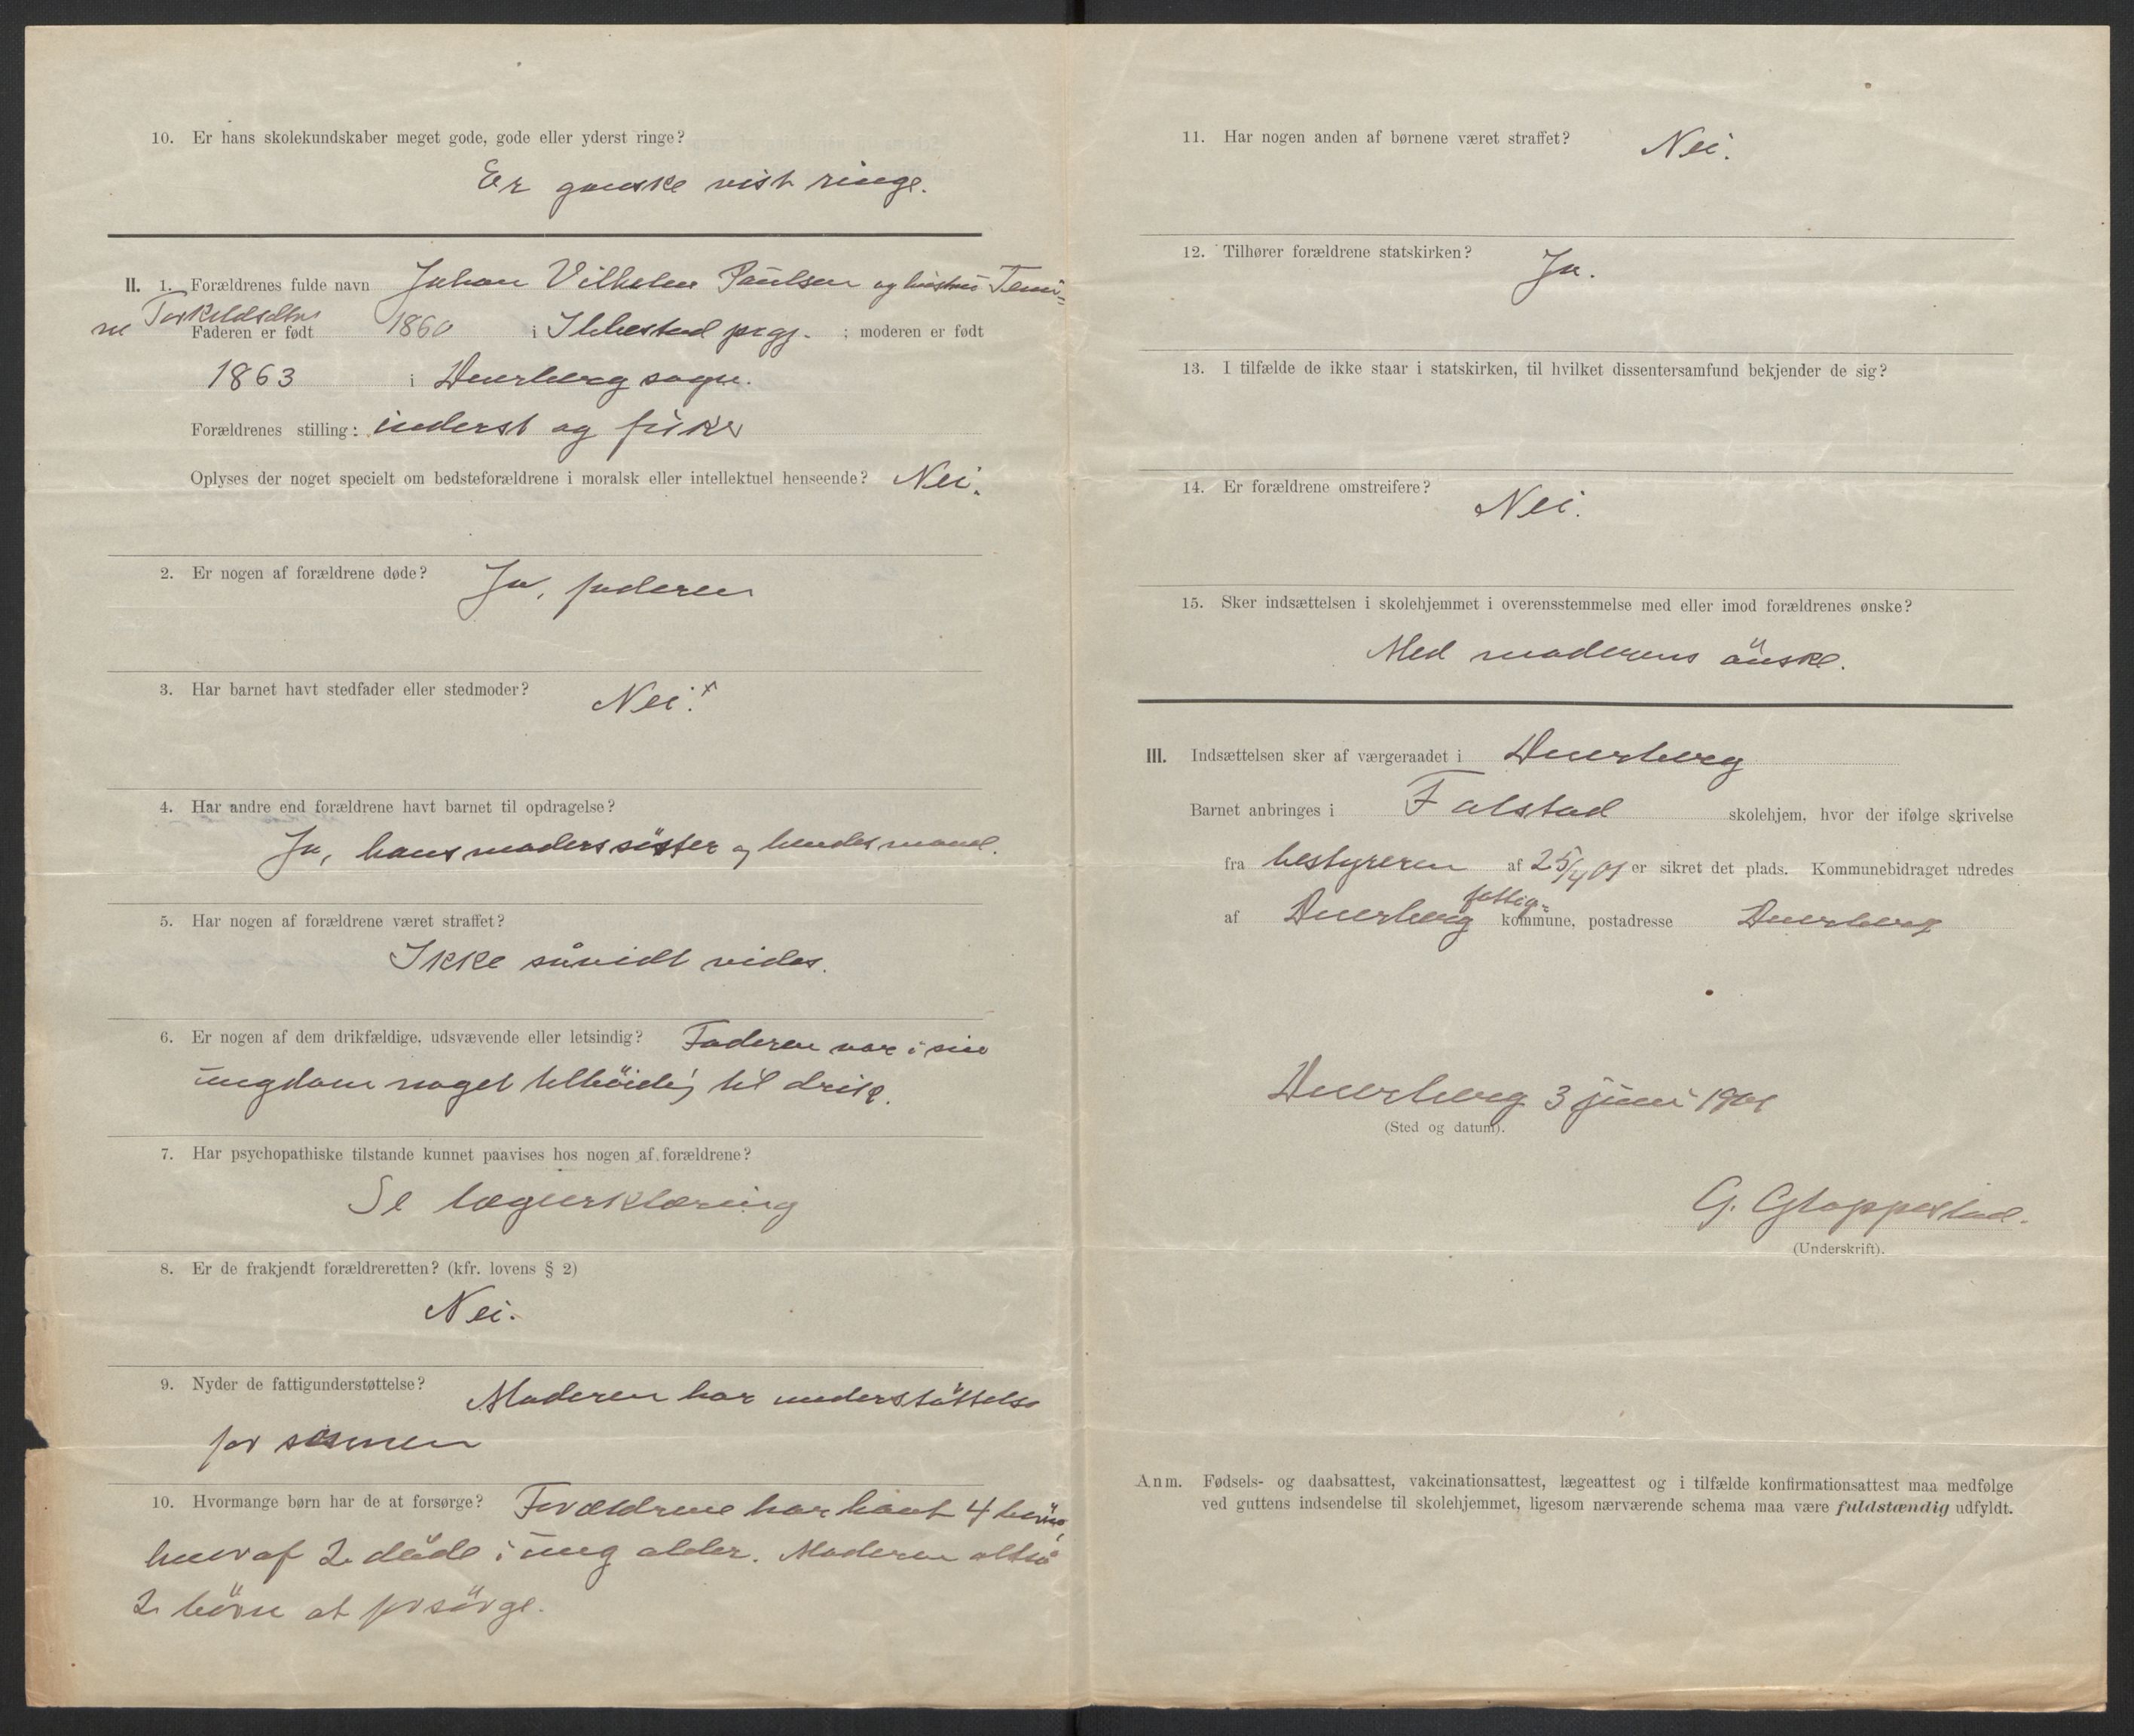 10. Er hans skolekundskaber meget gode, gode eller yderst ringe?
Er ganske vist ringe.
II. 1. Forældrenes fulde navn Johan Vilhelm Paulsen og hustru
Faderen er født 1860 i Ibbestad prgj. ; moderen er født
1863 i Dverberg sogn.
Forældrenes stilling: inderst og fisker
Oplyses der noget specielt om bedsteforældrene i moralsk eller intellektuel henseende? Nei.
2. Er nogen af forældrene døde? Ja, faderen
3. Har barnet havt stedfader eller stedmoder? Nei.x
4. Har andre end forældrene havt barnet til opdragelse?
Ja, hans moders söster og hendes mand.
5. Har nogen af forældrene været straffet?
Ikke såvidt vides.
6. Er nogen af dem drikfældige, udsvævende eller letsindig? Faderen var i sin
ungdom noget tilböielig til drik.
7. Har psychopathiske tilstande kunnet paavises hos nogen af forældrene?
Se lægeerklæring
8. Er de frakjendt forældreretten? (kfr. lovens § 2)
Nei.
9. Nyder de fattigunderstøttelse? Moderen har understöttelse
for sönnen
10. Hvormange børn har de at forsørge? Forældrene har havt 4 börn,
hvoraf 2 döde i ung alder. Moderen altså
2 börn at forsörge.
11. Har nogen anden af børnene været straffet? Nei.
12. Tilhører forældrene statskirken? Ja.
13. I tilfælde de ikke staar i statskirken, til hvilket dissentersamfund bekjender de sig?
14. Er forældrene omstreifere? Nei.
15. Sker indsættelsen i skolehjemmet i overensstemmelse med eller imod forældrenes ønske?
Med moderens önske.
III. Indsættelsen sker af værgeraadet i Dverberg
Barnet anbringes i Falstad skolehjem, hvor der ifølge skrivelse
fra bestyreren af 25/4 01 er sikret det plads. Kommunebidraget udredes
fattig-
af Dverberg kommune, postadresse Dverberg
Dverberg 3 juni 1901
(Sted og datum).
G. Gloppestad.
(Underskrift).
Anm. Fødsels- og daabsattest, vakcinationsattest, lægeattest og i tilfælde konfirmationsattest maa medfølge
ved guttens indsendelse til skolehjemmet, ligesom nærværende schema maa være fuldstændig udfyldt.